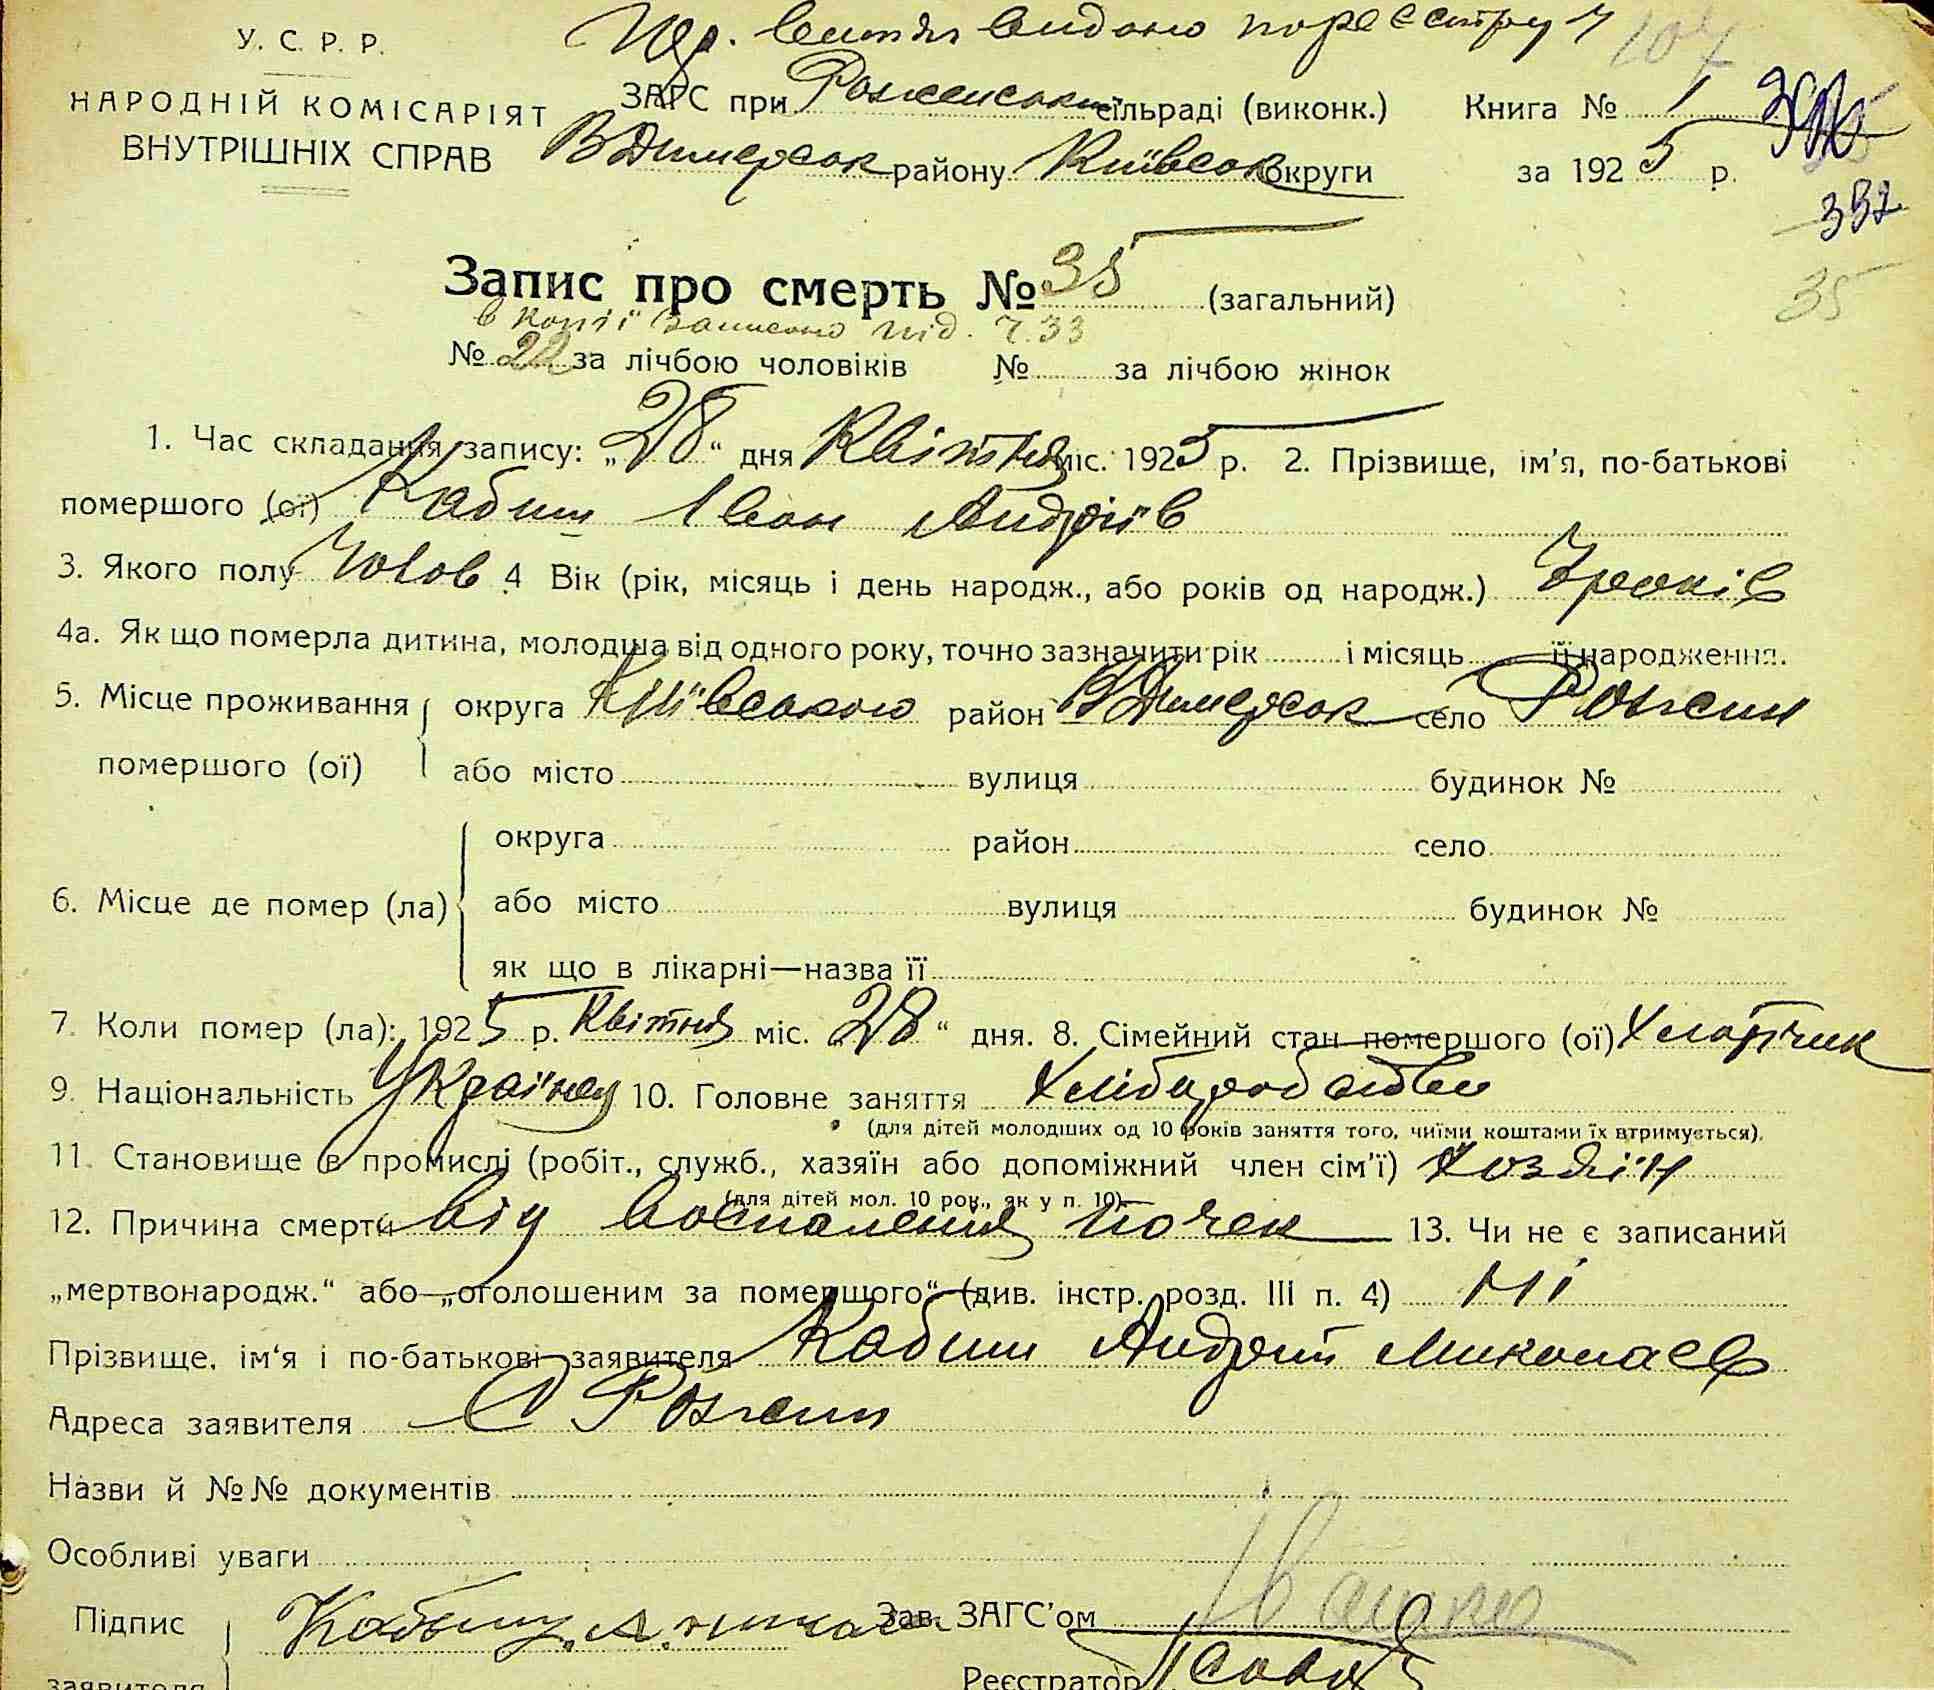 У. С. Р. Р.
НАРОДНІЙ КОМІСАРІЯТ
ВНУТРІШНІХ СПРАВ
видано
ЗАГС при Роженськ сільраді (виконк.)
ВДимерськ району Київськ округи
Книга № 1
за 1925 р.
332
35
Запис про смерть № 35 (загальний)
в копії записано під. Ч. 33
№ 22 за лічбою чоловіків № за лічбою жінок
1. Час складання запису: „28“ дня Квітня міс. 1925 р. 2. Прізвище, ім'я, по-батькові
помершого (ої) Кабиш Іван Андріїв
3. Якого полу Чолов 4 Вік (рік, місяць і день народж., або років од народж.) років
4а. Як що померла дитина, молодша від одного року, точно зазначити рік і місяць її народження.
5. Місце проживання округа Київського район ВДимерськ село Рожни
помершого (ої) або місто вулиця будинок №
округа район село
6. Місце де помер (ла) або місто вулиця будинок №
як що в лікарні—назва її
7. Коли помер (ла): 1925 р. Квітня міс. „28“ дня. 8. Сімейний стан помершого (ої) Хлопчик
9. Національність Українец 10. Головне заняття Хліборобство
(для дітей молодших од 10 років заняття того, чиїми коштами їх втримується).
11. Становище в промислі (робіт., служб., хазяїн або допоміжний член сім'ї) Хозяїн
(для дітей мол. 10 рок., як у п. 10)
12. Причина смерти від воспаления почек 13. Чи не є записаний
„мертвонародж.“ або „оголошеним за помершого“ (див. інстр. розд. III п. 4) Ні
Прізвище, ім'я і по-батькові заявителя Кабиш Андрій Миколаєв
Адреса заявителя С Рожни
Назви й №№ документів
Особливі уваги
Підпис Кабыш А. Зав. ЗАГС'ом
заявителя Реєстратор